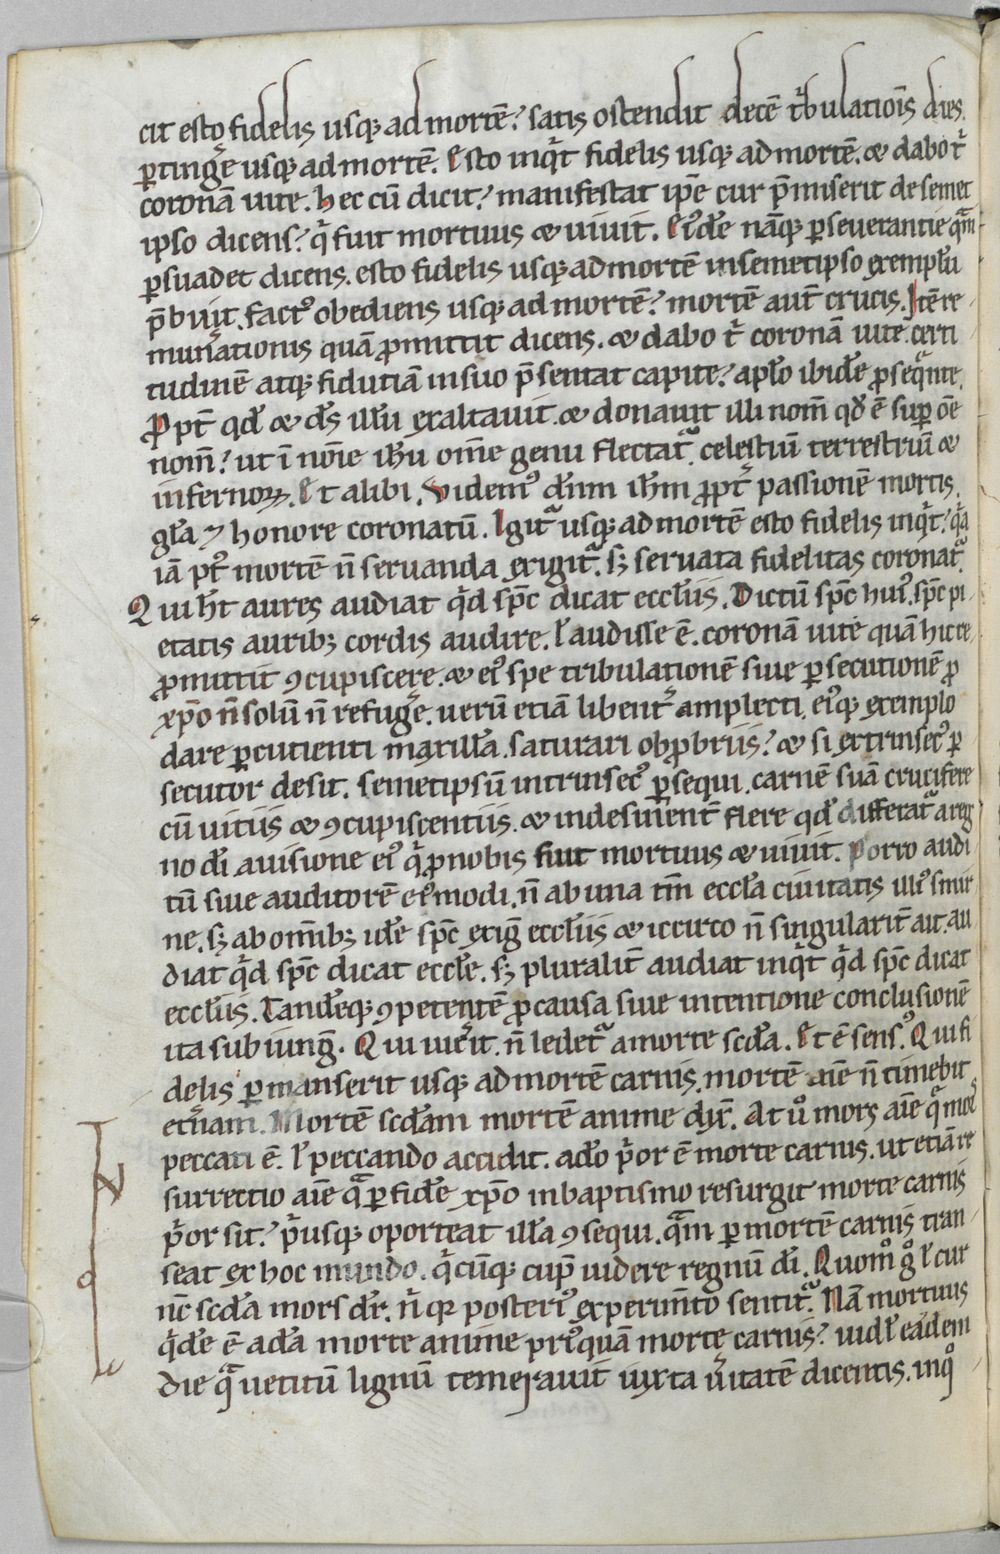 cit esto fidelis usq; ad mortē? satis ostendit decē tͥbulationis dies
ꝑtingͤe usq; ad mortē. Esto inqͥt fidelis usq; ad mortē. & dabo tͥ
coronā uite. hec cū dicit? manifestat ip̄e cur p̄miserit de semet
ipso dicens? qͥ fuit mortuus & uiuit. Eiꝰdē nāq; perseuerantie quā
ꝑsuadet dicens. esto fidelis usq; ad mortē in semetipso exemplū
p̄buit. factꝰ obediens usq; ad mortē? mortē aut̄ crucis. Itē re
munͤationis quā ꝓmittit dicens. & dabo tͥ coronā uite. certi
tudinē atq; fidutiā in suo p̄sentat capite? apło ibidē ꝓseqͤnte.
Ꝓpt̄ qd̄ & dꝰs illū exaltauit. & donauit illi nom̄ qd̄ ē suꝑ om̄e
nom̄? ut ī noīe ihu om̄e genu flectatͬ celestiū terrestriū &
infernoꝝ. Et alibi. Videmꝰ dn̄m ihm̄ ꝓpt̄ passionē mortis.
gła ⁊ honore coronatū. Igitͬ usq; ad mortē esto fidelis inqͥt? qͥa
iā pꝰt mortē n̄ seruanda exigitͬ. sꝫ seruata fidelitas coronatͬ.
Qui ht̄ aures audiat qͥd sp̄c dicat eccłiis. Dictū sp̄c huiꝰ. sp̄c pi
etatis auribꝫ cordis audire. ł audisse ē. coronā uite quā hic re
ꝓmittit ꝯcupiscere. & eiꝰ spe tribulationē siue ꝑsecutionē ꝓ
xp̄o n̄ solū n̄ refugͤe. uerū etiā libent̄ amplecti. eiꝰq; exemplo
dare ꝑcutienti maxillā. saturari obꝓbriis? & si extrinsecꝰ ꝑ
secutor desit. semetipsū intrinsecꝰ ꝑsequi. carnē suā crucifere
cū uitiis & ꝯcupiscentiis. & indesinent̄ flere qd̄ differatͬ a reg
no dī. a uisione eiꝰ qͥ ꝓ nobis fuit mortuus & uiuit. Porro audi
tū siue auditorē eiꝰmodi. n̄ ab una tm̄ eccła ciuitatis illiꝰ smir
ne. sꝫ ab om̄ibꝫ idē sp̄c exigͭ eccłiis & iccirco n̄ singularit̄ ait. au
diat qͥd sp̄c dicat eccłe. sꝫ pluralit̄ audiat inqͥt qͥd sp̄c dicat
eccłiis. Tandēq; ꝯpetentē ꝓ causa siue intentione conclusionē
ita subiungͭ. Qui uicͤit. n̄ ledetͬ a morte scd̄a. Et ē sensꝰ. Qui fi
delis ꝑmanserit usq; ad mortē carnis. mortē aīe n̄ timebit
etͤnam. Mortē scd̄am mortē anime dix̄. At uͦ mors aīe qͥ mod̄
peccati ē. ł peccando accidit. adeo pͥor ē morte carnis. ut etiā re
surrectio aīe qͣ ꝑ fidē xp̄o in baptismo resurgit morte carnis
pͥor sit? pͥusq; oporteat illā ꝯsequi. qͣm ꝑ mortē carnis tran
seat ex hoc mundo. qͥcūq; cupͭ uidere regnū dī. Quomͦ gͦ ł cur
nc̄ scd̄a mors dr̄. n̄ qꝛ posteriꝰ experim̄to sentitͬ. Nā mortuus
qͥdē ē adā morte anime priꝰquā morte carnis? uidł eadem
die qͣ uetitū lignū temerauit iuxta uͤitatē dicentis. inqͦ